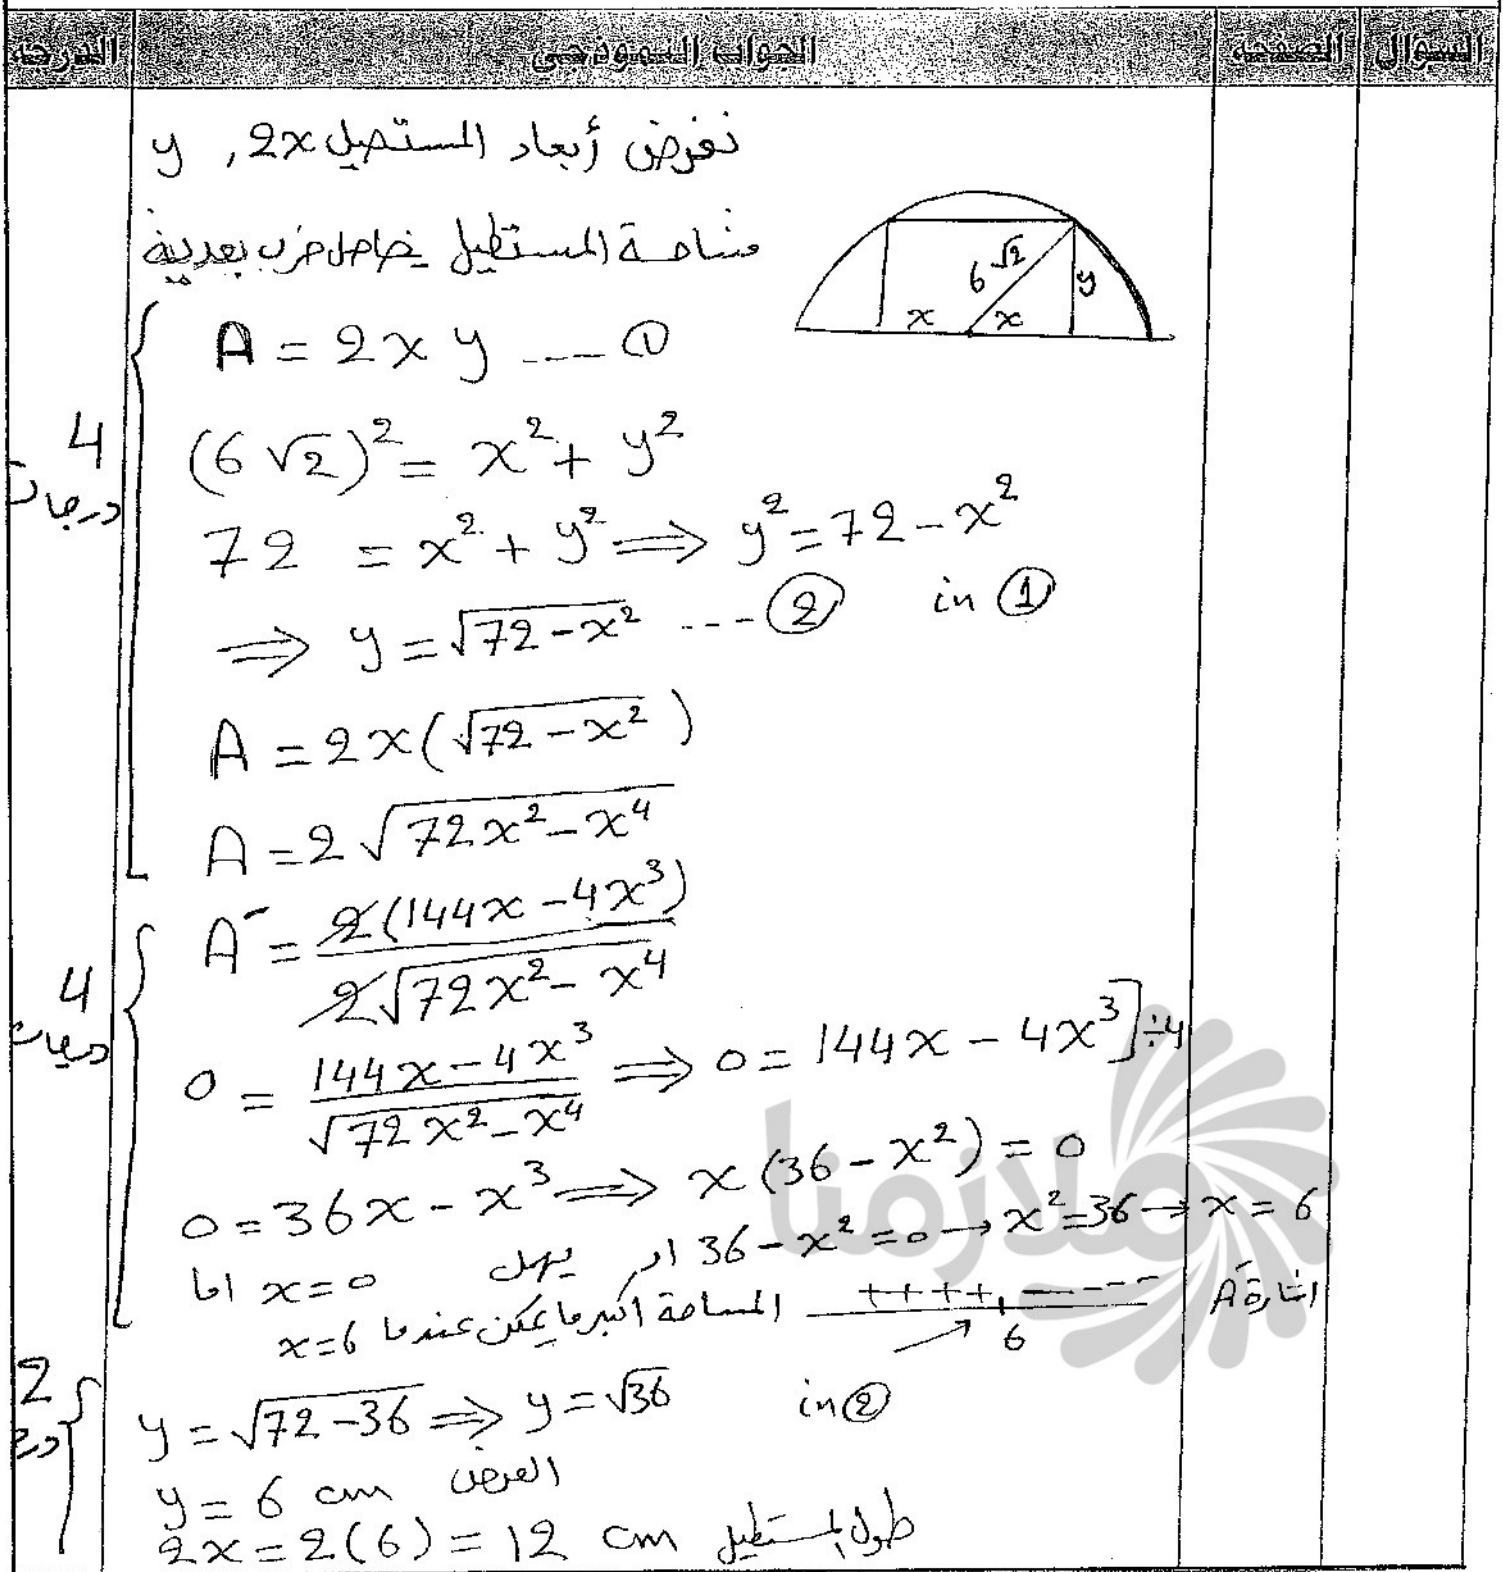 السؤال الصفحة الجواب النموذجي الدرجة
نفرض أبعاد المستطيل 2x , y
مساحة المستطيل = حاصل ضرب بعديه
6√2 y
x x
A = 2xy ---- ①
4 درجات
(6√2)² = x² + y²
72 = x² + y² ⟹ y² = 72 − x²
⟹ y = √(72 − x²) --- ② in ①
A = 2x(√(72 − x²))
A = 2√(72x² − x⁴)
A′ = 2(144x − 4x³) / 2√(72x² − x⁴)
4 درجات
0 = (144x − 4x³) / √(72x² − x⁴) ⟹ 0 = 144x − 4x³] ÷4
0 = 36x − x³ ⟹ x(36 − x²) = 0
اما x = 0 يهمل او 36 − x² = 0 → x² = 36 → x = 6
المساحة اكبر ما يمكن عندما x = 6 ++++ ----- 6 اشارة A′
2 درجة
y = √(72 − 36) ⟹ y = √36 in ②
y = 6 cm العرض
2x = 2(6) = 12 cm طول المستطيل
ملازمنا